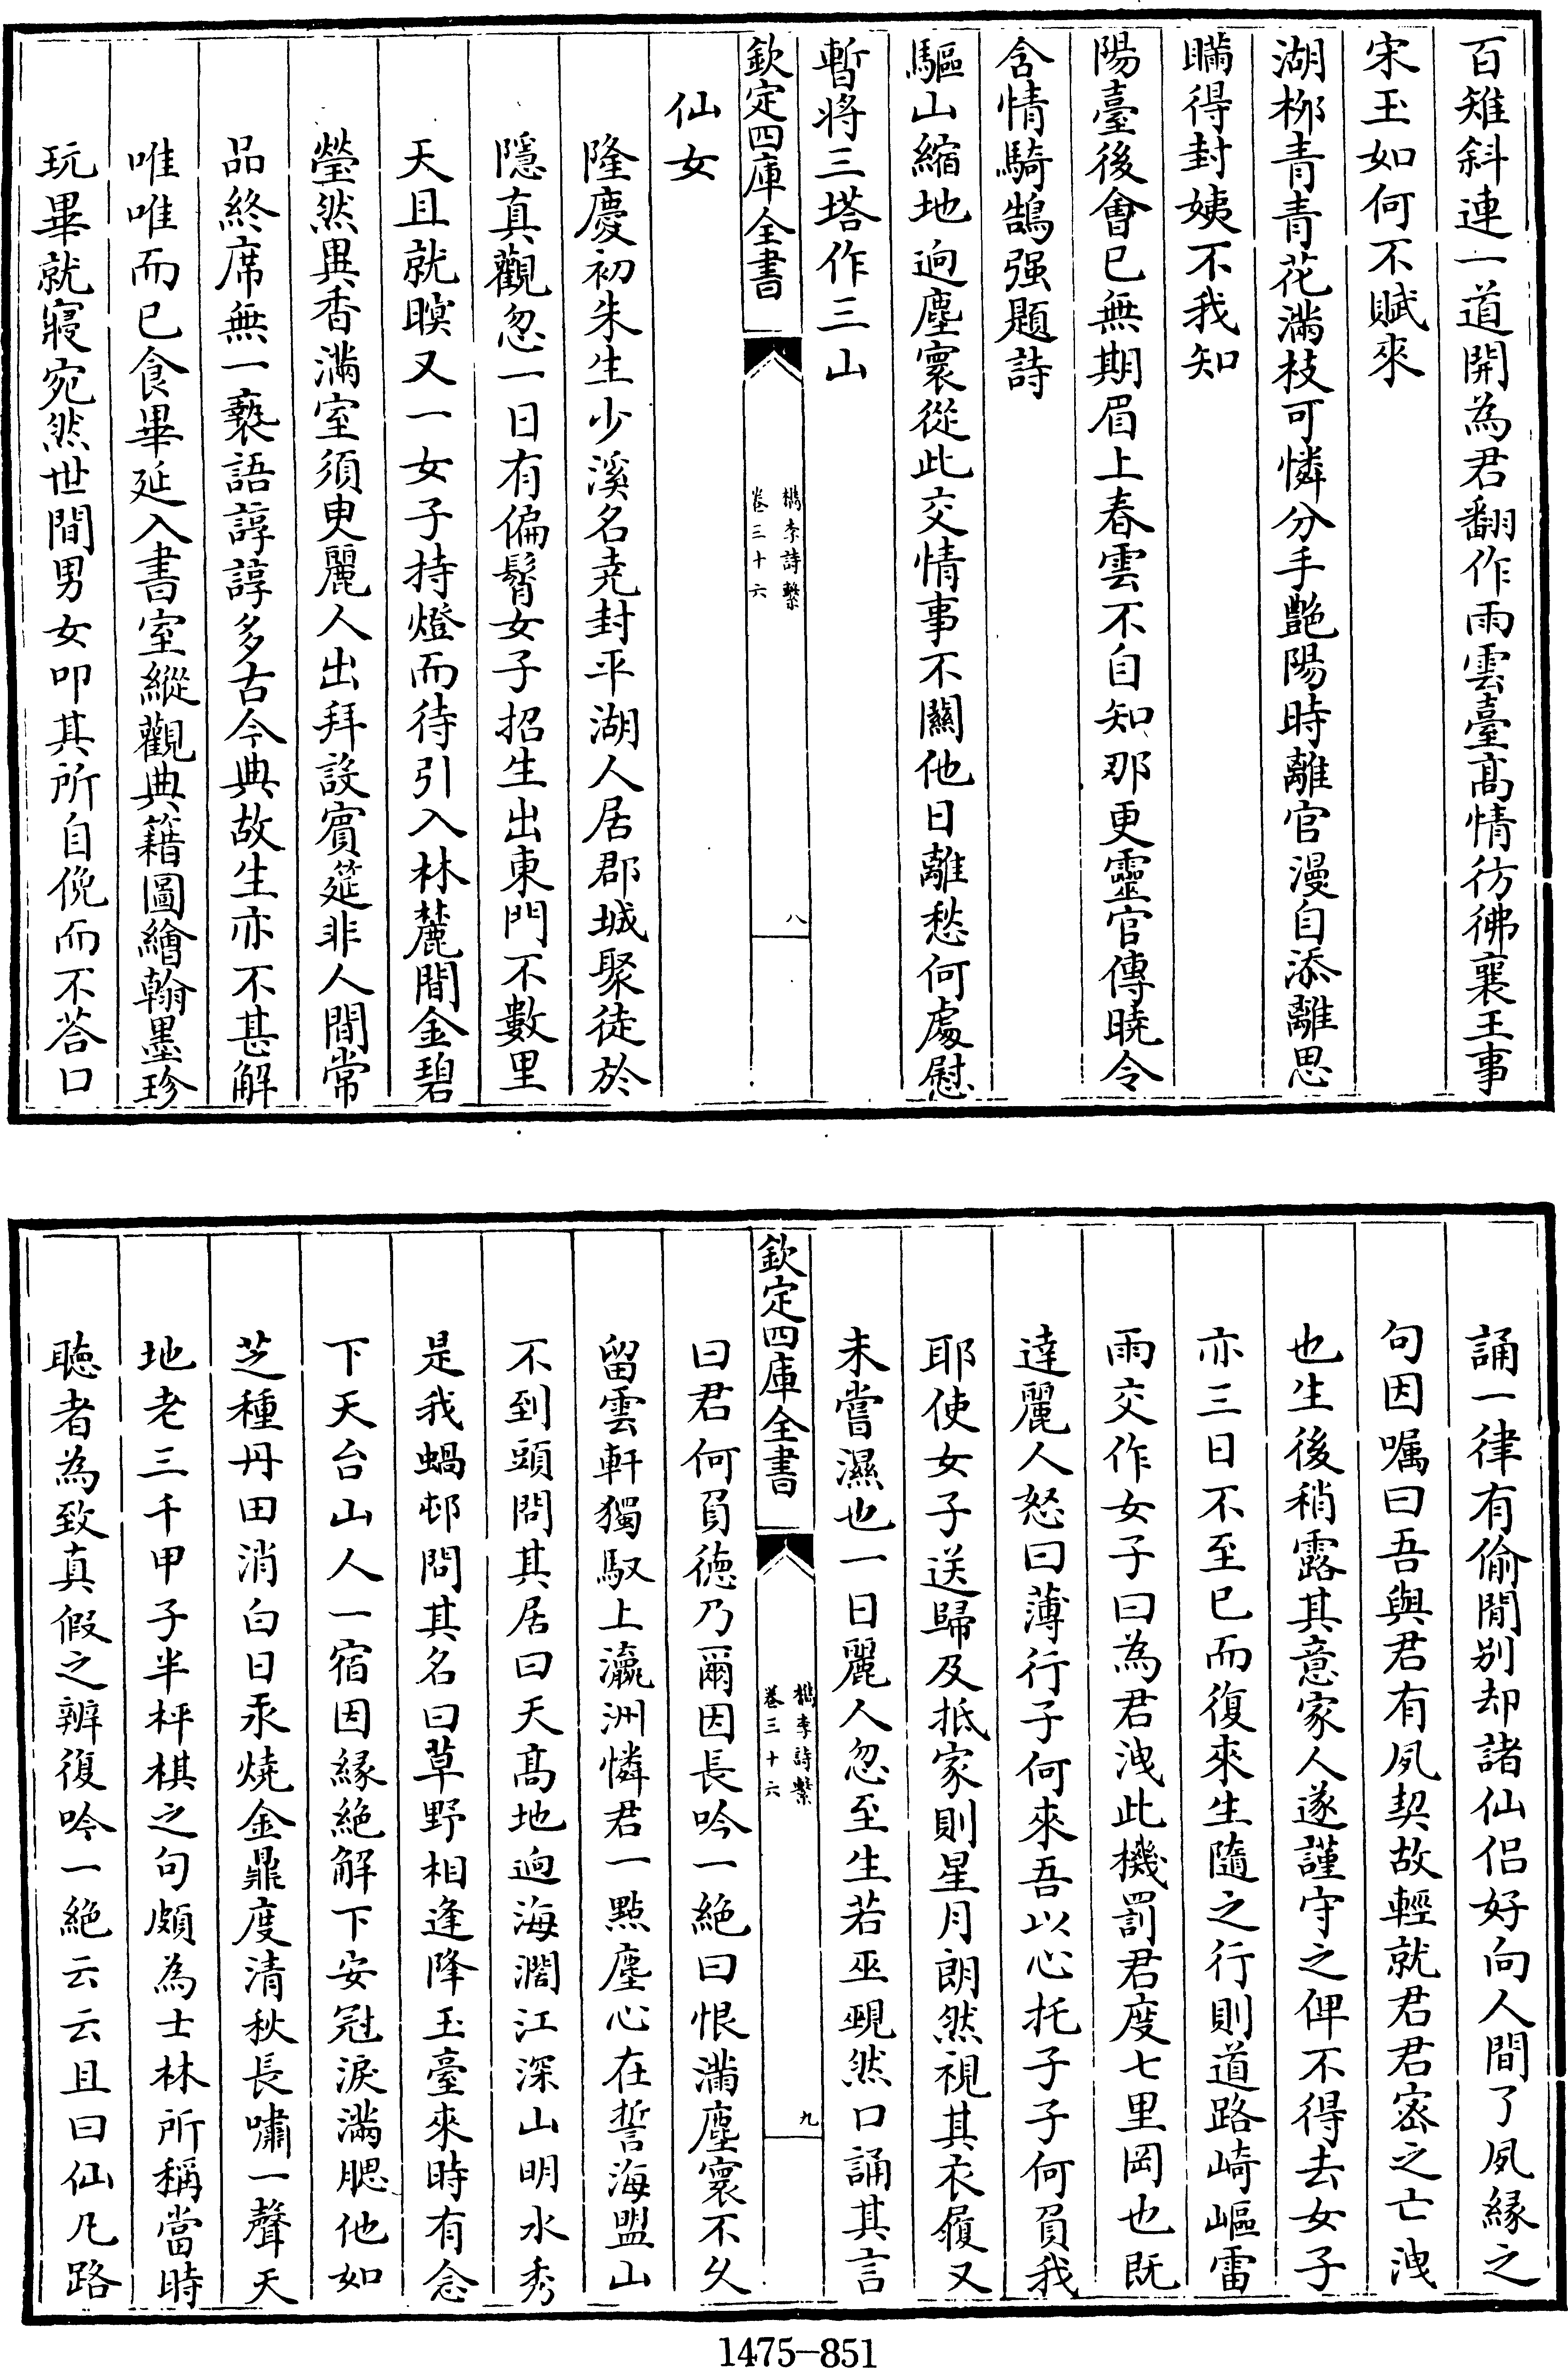 百雉斜連一道開為君翻作雨雲臺高情彷彿襄王事
宋玉如何不賦來
湖栁青青花滿枝可憐分手艶陽時離官漫自添離思
瞞得封姨不我知
陽臺後㑹已無期眉上春雲不自知那更靈官傳曉令
含情騎鵠强題詩
驅山縮地逈塵寰從此交情事不闗他日離愁何處慰
暫將三塔作三山
欽定四庫全書
檇李詩繫
卷三十六
八
仙女
隆慶初朱生少溪名尭封平湖人居郡城聚徒於
隱真觀忽一日有偏髾女子招生出東門不數里
天且就暝又一女子持燈而待引入林麓間金碧
瑩然異香滿室須臾麗人出拜設賓筵非人間常
品終席無一褻語諄諄多古今典故生亦不甚解
唯唯而已食畢延入書室縱觀典籍圖繪翰墨珍
玩畢就寢宛然世間男女叩其所自俛而不荅口
誦一律有偷閒别却諸仙侣好向人間了夙縁之
句因嘱曰吾與君有夙契故輕就君君宻之亡洩
也生後稍露其意家人遂謹守之俾不得去女子
亦三日不至已而復來生隨之行則道路﨑嶇雷
雨交作女子曰為君洩此機罰君度七里岡也既
逹麗人怒曰薄行子何來吾以心托子子何負我
耶使女子送歸及抵家則星月朗然視其衣履又
未嘗濕也一日麗人忽至生若巫覡然口誦其言
欽定四庫全書
檇李詩繫
卷三十六
九
曰君何負徳乃爾因長吟一絶曰恨滿塵寰不久
留雲軒獨馭上瀛洲憐君一點塵心在誓海盟山
不到頭問其居曰天高地逈海濶江深山明水秀
是我蝸邨問其名曰草野相逢降玉臺來時有念
下天台山人一宿因縁絶解下安冠淚滿腮他如
芝種丹田消白日汞燒金鼎度清秋長嘯一聲天
地老三千甲子半枰棋之句頗為士林所稱當時
聴者為致真假之辨復吟一絶云云且曰仙凡路
1475-851